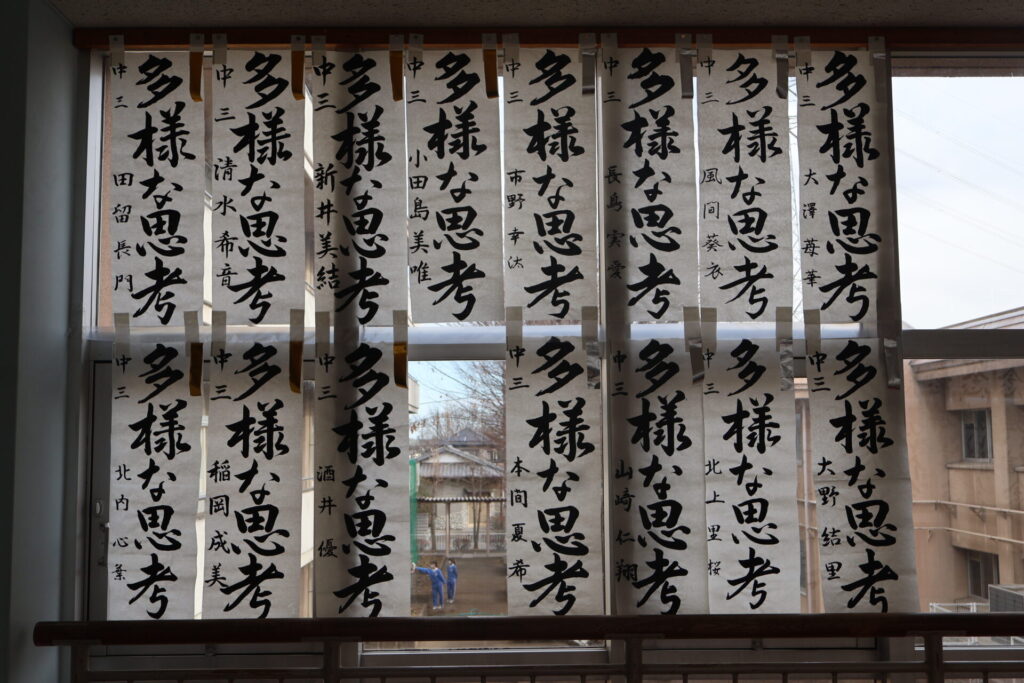 多様な思考
中三 大澤苺華
多様な思考
中三 風間葵衣
多様な思考
中三 長島実愛
多様な思考
中三 市野幸汰
多様な思考
中三 小田島美唯
多様な思考
中三 新井美結
多様な思考
中三 清水希音
多様な思考
中三 田留長門
多様な思考
中三 大野結里
多様な思考
中三 北上里桜
多様な思考
中三 山崎仁翔
多様な思考
中三 本間夏希
多様な思考
中三 酒井優
多様な思考
中三 稲岡成美
多様な思考
中三 北内心葉